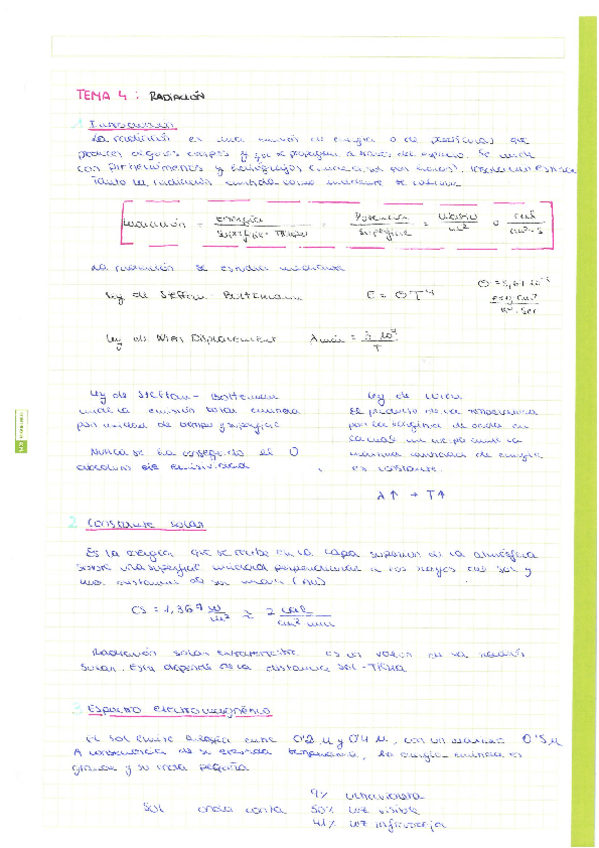 TEMA 4: RADIACIÓN
1 Introducción
La radiación es una emisión de energía o de partículas que
producen algunos cuerpos y que se propaga a través del espacio. Se mide
con pirheliómetros y
Tanto la radiación emitida como
Radiación = energía / superficie · Tiempo = Potencia / superficie = / m² o cal / cm² · s
La radiación se estudia mediante
ley de Steffan - Boltzmann E = σ T⁴
ley de Wien Displacement λ max = 3 · 10³ / T
ley de Steffan - Boltzman
indica emisión total emitida
por unidad de tiempo y superficie
Nunca se ha conseguido el 0
absoluto
ley de Wien
El producto de la temperatura
por la longitud de onda en
la cual un cuerpo emite la
máxima cantidad de energía
es constante.
λ↑ → T↑
2 Constante solar
Es la energía que se recibe en la capa superior de la atmósfera
sobre una superficie unidad perpendicular a los rayos del sol y
una distancia al sol media (AU)
CS = 1,367 / m² ≈ 2 cal / cm² min
Radiación solar extraterrestre. Es un valor de la radiación
solar. Esta depende de la distancia sol - Tierra
3 Espectro electromagnético
El sol emite energía entre 0'2 μ y μ, con un máximo 0'5 μ
A consecuencia de su elevada temperatura, la energía emitida es
grande y su onda pequeña
9% ultravioleta
Sol onda corta 50% luz visible
41% luz infrarroja